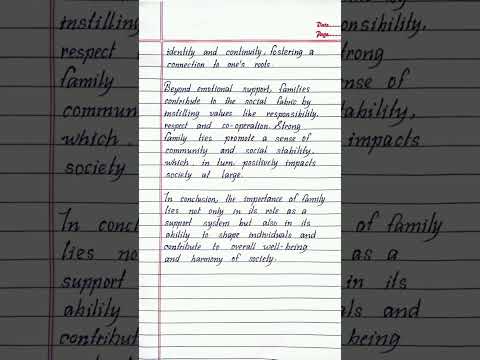 Date
Page
identity and continuity, fostering a
connection to one's roots.
Beyond emotional support, families
contribute to the social fabric by
instilling values like responsibility,
respect and co-operation. Strong
family ties promote a sense of
community and social stability,
which, in turn, positively impacts
society at large.
In conclusion, the importance of family
lies not only in its role as a
support system but also in its
ability to shape individuals and
contribute to overall well-being
and harmony of society.